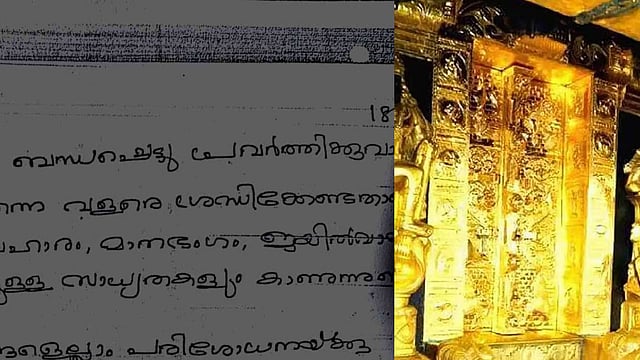 18
ബന്ധപ്പെട്ടു പ്രവർത്തിക്കുവാ
ന്നെ വളരെ ശ്രദ്ധിക്കേണ്ടതാ
ഹാരം, മാനഭംഗം, ജയിൽവാ
ള്ള സാധ്യതകളും കാണുന്നു
ളെല്ലാം പരിശോധനയ്ക്കു